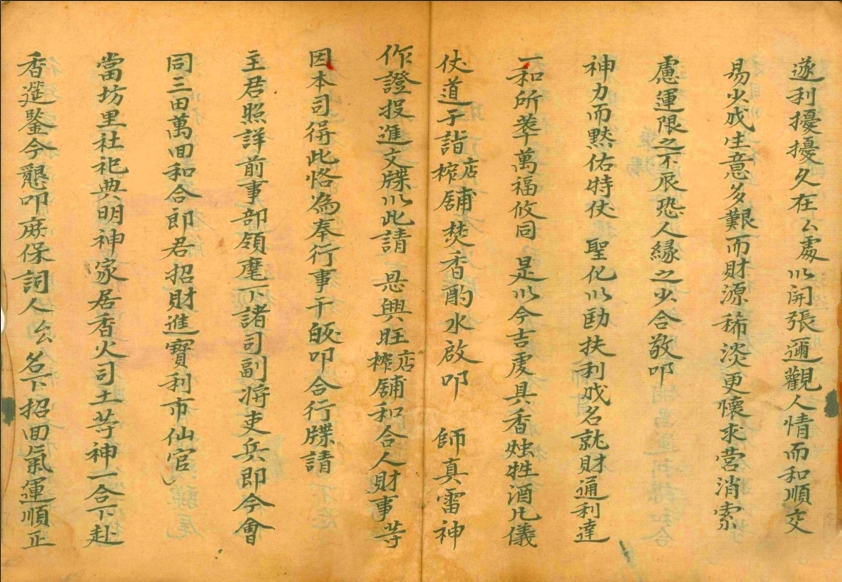 遂利擾擾久在厶處以開張邇觀人情而和順交
易少成生意多艱而財源稀淡更懷求營消索
慮運限之不辰恐人緣之少合敬叩
神力而黙佑特仗 聖化以助扶利成名就財通利達
一和所萃萬福攸同 是以今吉虔具香燭牲酒凡儀
仗道子詣榨店舖焚香酌水啟叩 師真雷神
作證投進文牒以此請 恩興旺榨店舖和合人財事等
因本司得此恪為奉行事干皈叩合行牒請
主君照詳前事部領麾下諸司副將吏兵即今會
同三田萬回和合郎君招財進寶利市仙官
當坊里社祀典明神家居香火司土等神一合下赴
香筵鑒今懇叩庥保詞人厶名下招回氣運順正